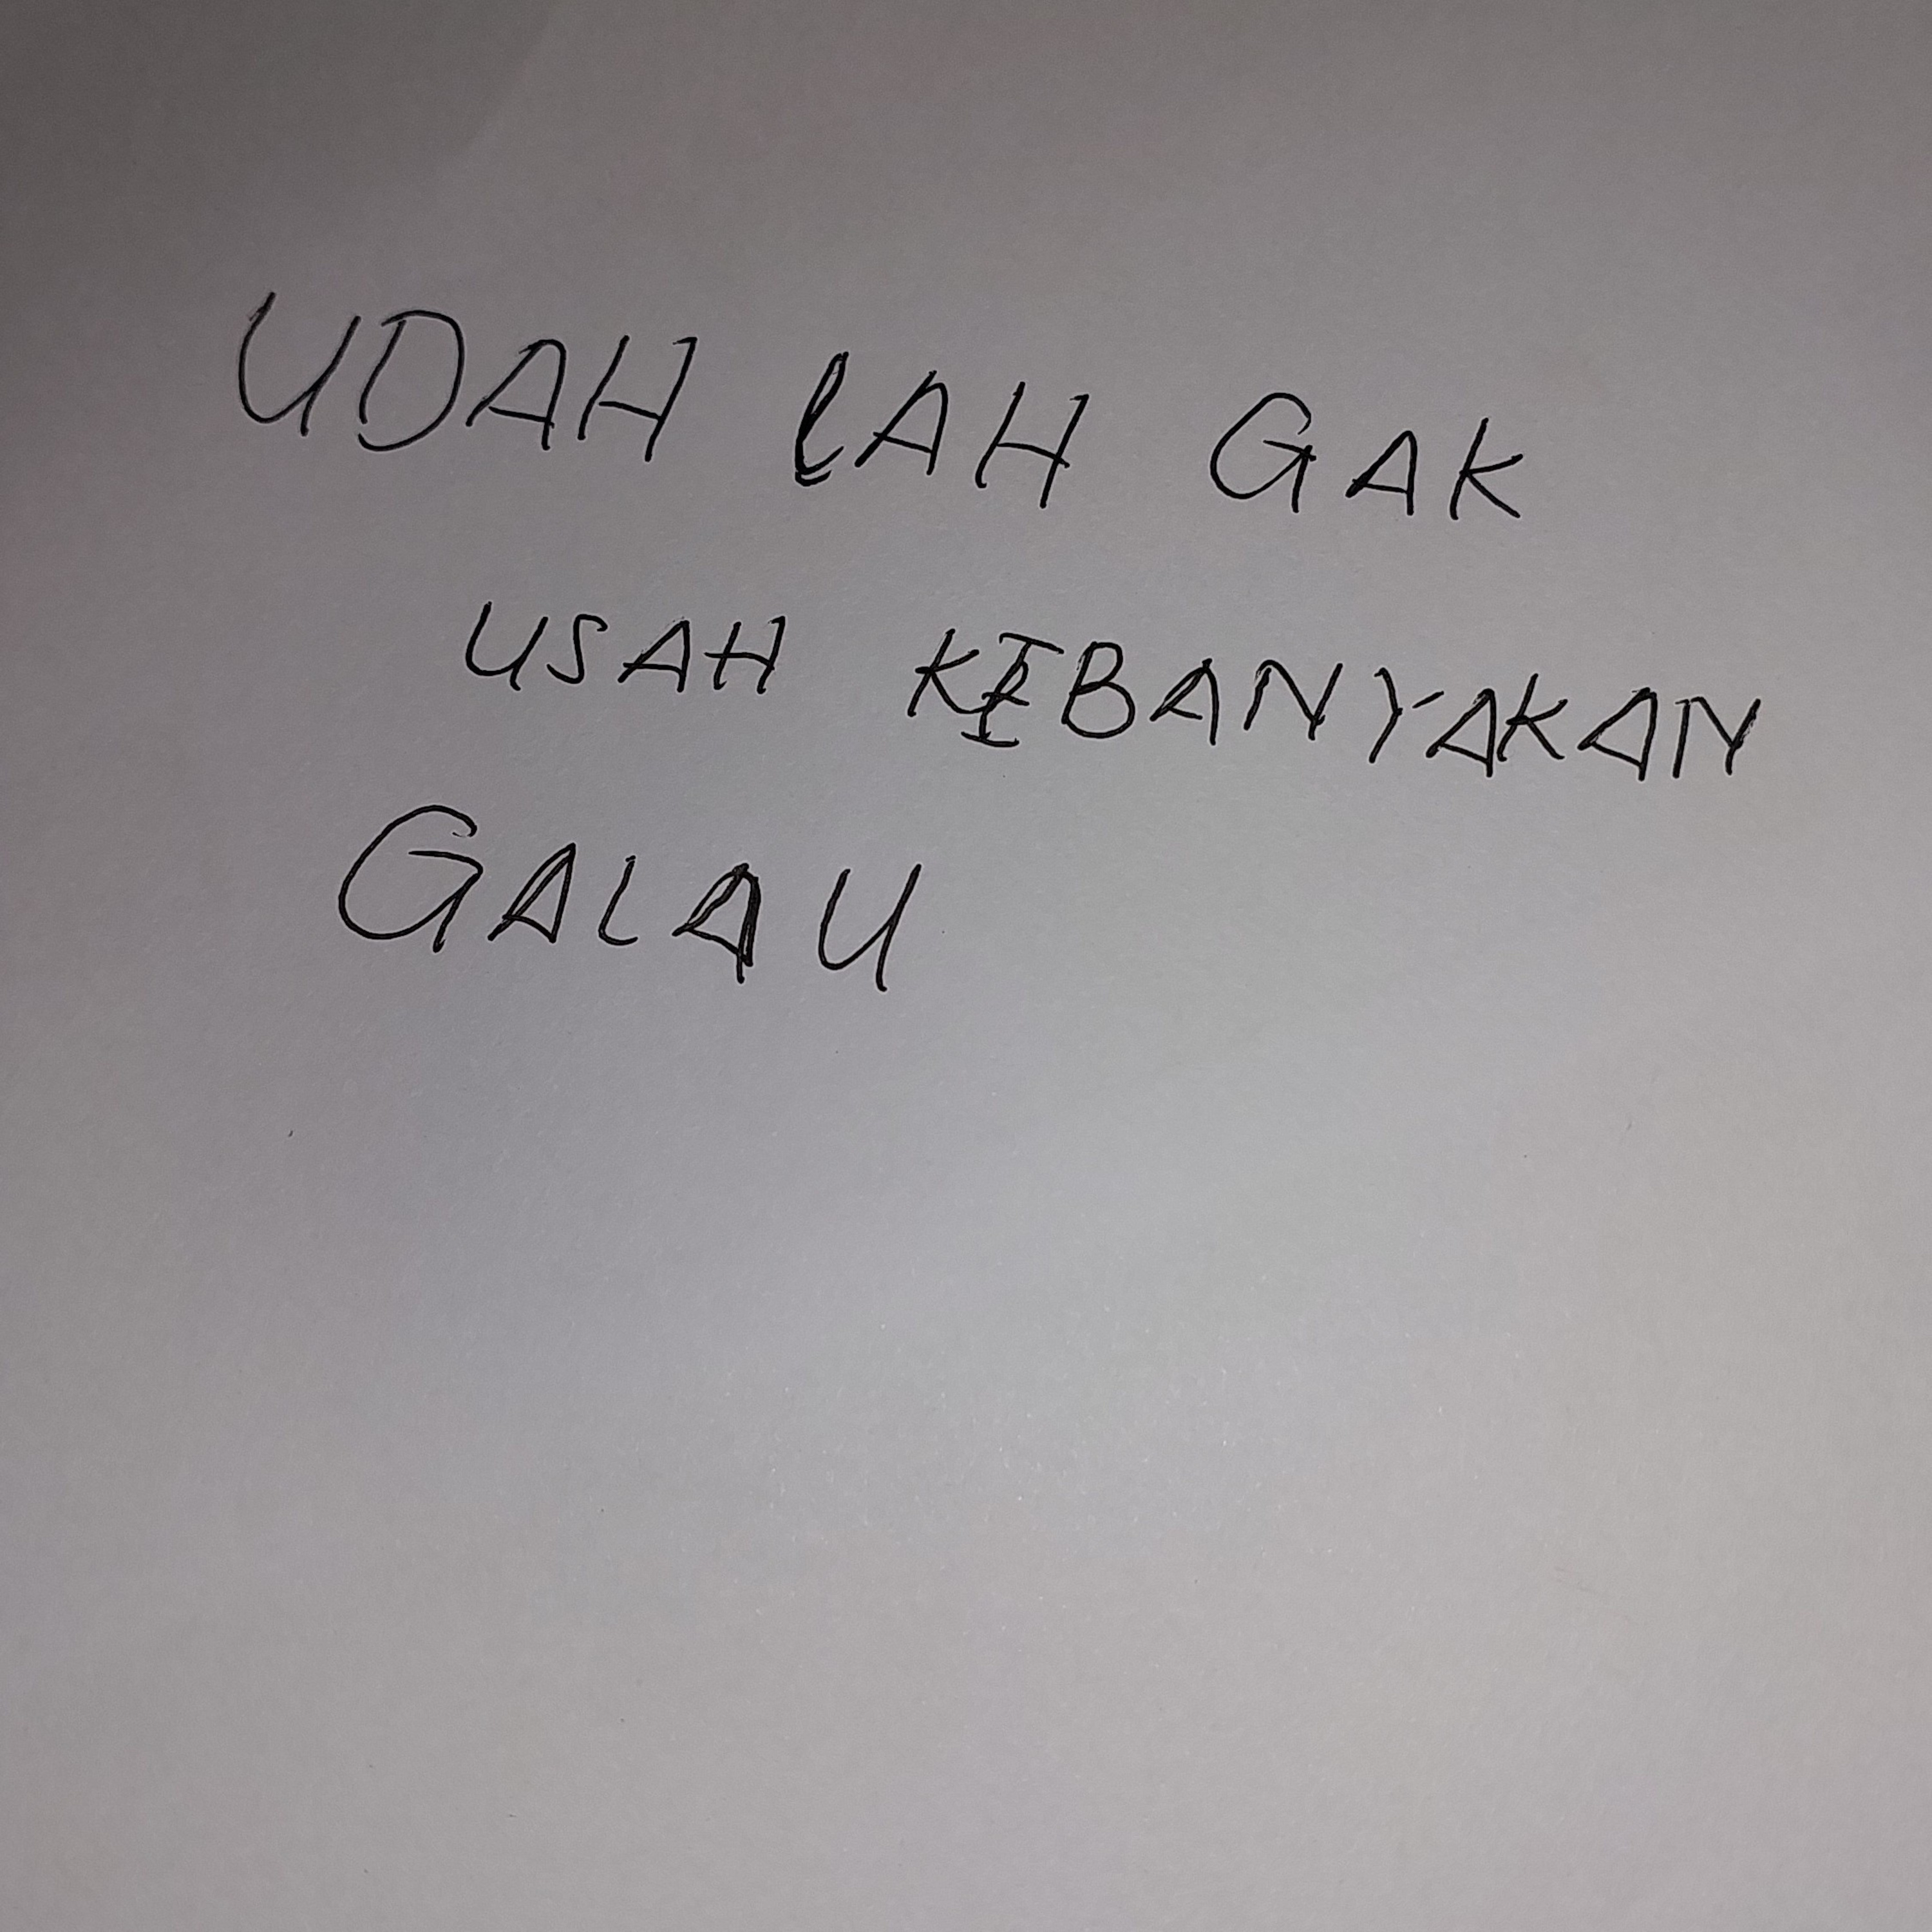 UDAH LAH GAK
USAH KEBANYAKAN
GALAU